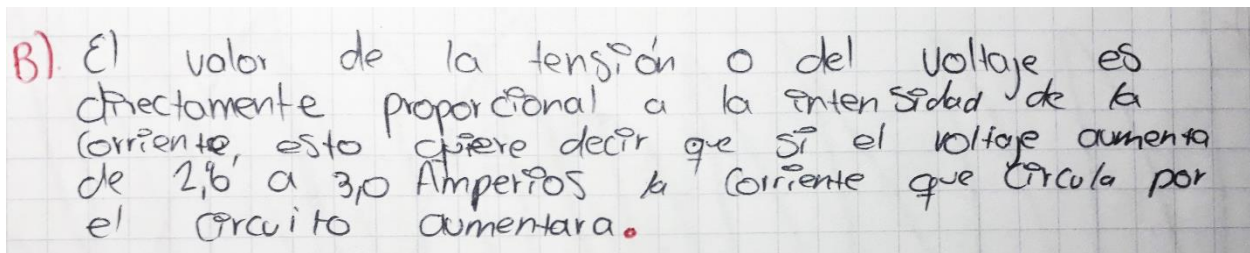 B). El valor de la tensión o del voltaje es
directamente proporcional a la intensidad de la
corriente, esto quiere decir que si el voltaje aumenta
de 2,6 a 3,0 Amperios la corriente que circula por
el circuito aumentara.